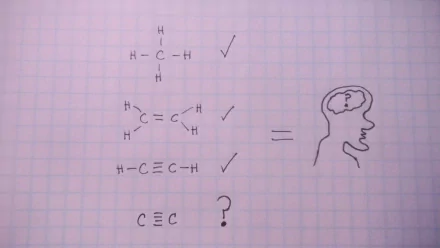 H
H – C – H ✓
H
H H
C = C ✓
H H
=
?
H – C ≡ C – H ✓
C ≣ C ?